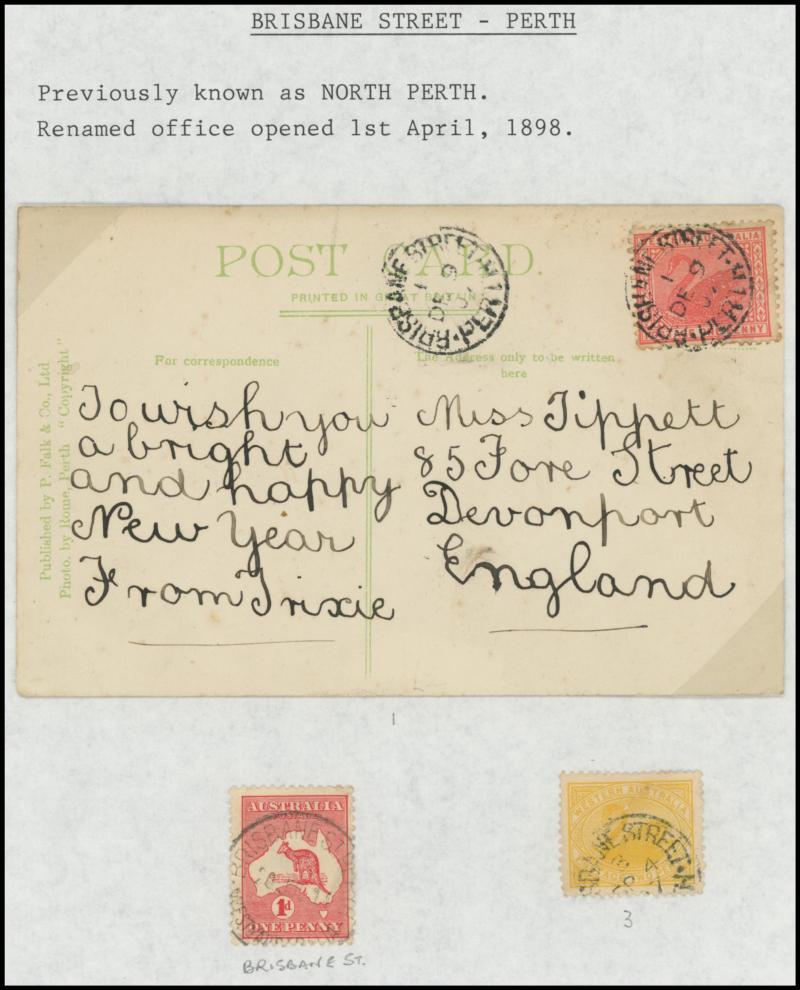 BRISBANE STREET - PERTH
Previously known as NORTH PERTH.
Renamed office opened 1st April, 1898.
POST CARD.
PRINTED IN GREAT BRITAIN
BRISBANE STREET·N
1
DE 9
PERTH
BRISBANE STREET·N
1
DE 9
PERTH
PENNY
Published by P. Falk & Co., Ltd
Photo. by Rome, Perth "Copyright"
For correspondence
The Address only to be written
here
To wish you
a bright
and happy
New Year
From Trixie
Miss Tippett
85 Fore Street
Devonport
England
1
AUSTRALIA
BRISBANE ST
1d
ONE PENNY
BRISBANE ST.
WESTERN AUSTRALIA
BANE STREET·N
4
3